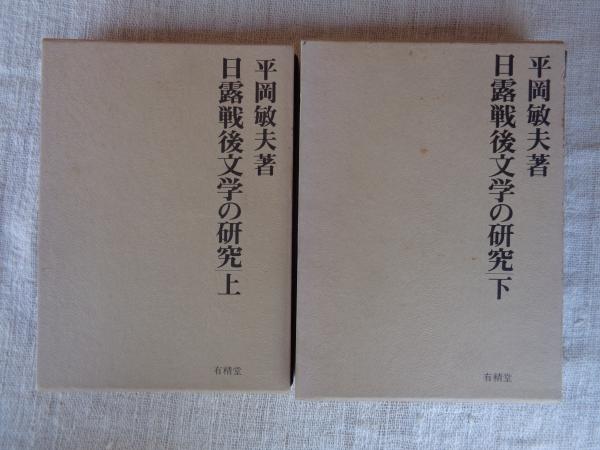 平岡敏夫著
日露戦後文学の研究 上
有精堂
平岡敏夫著
日露戦後文学の研究 下
有精堂